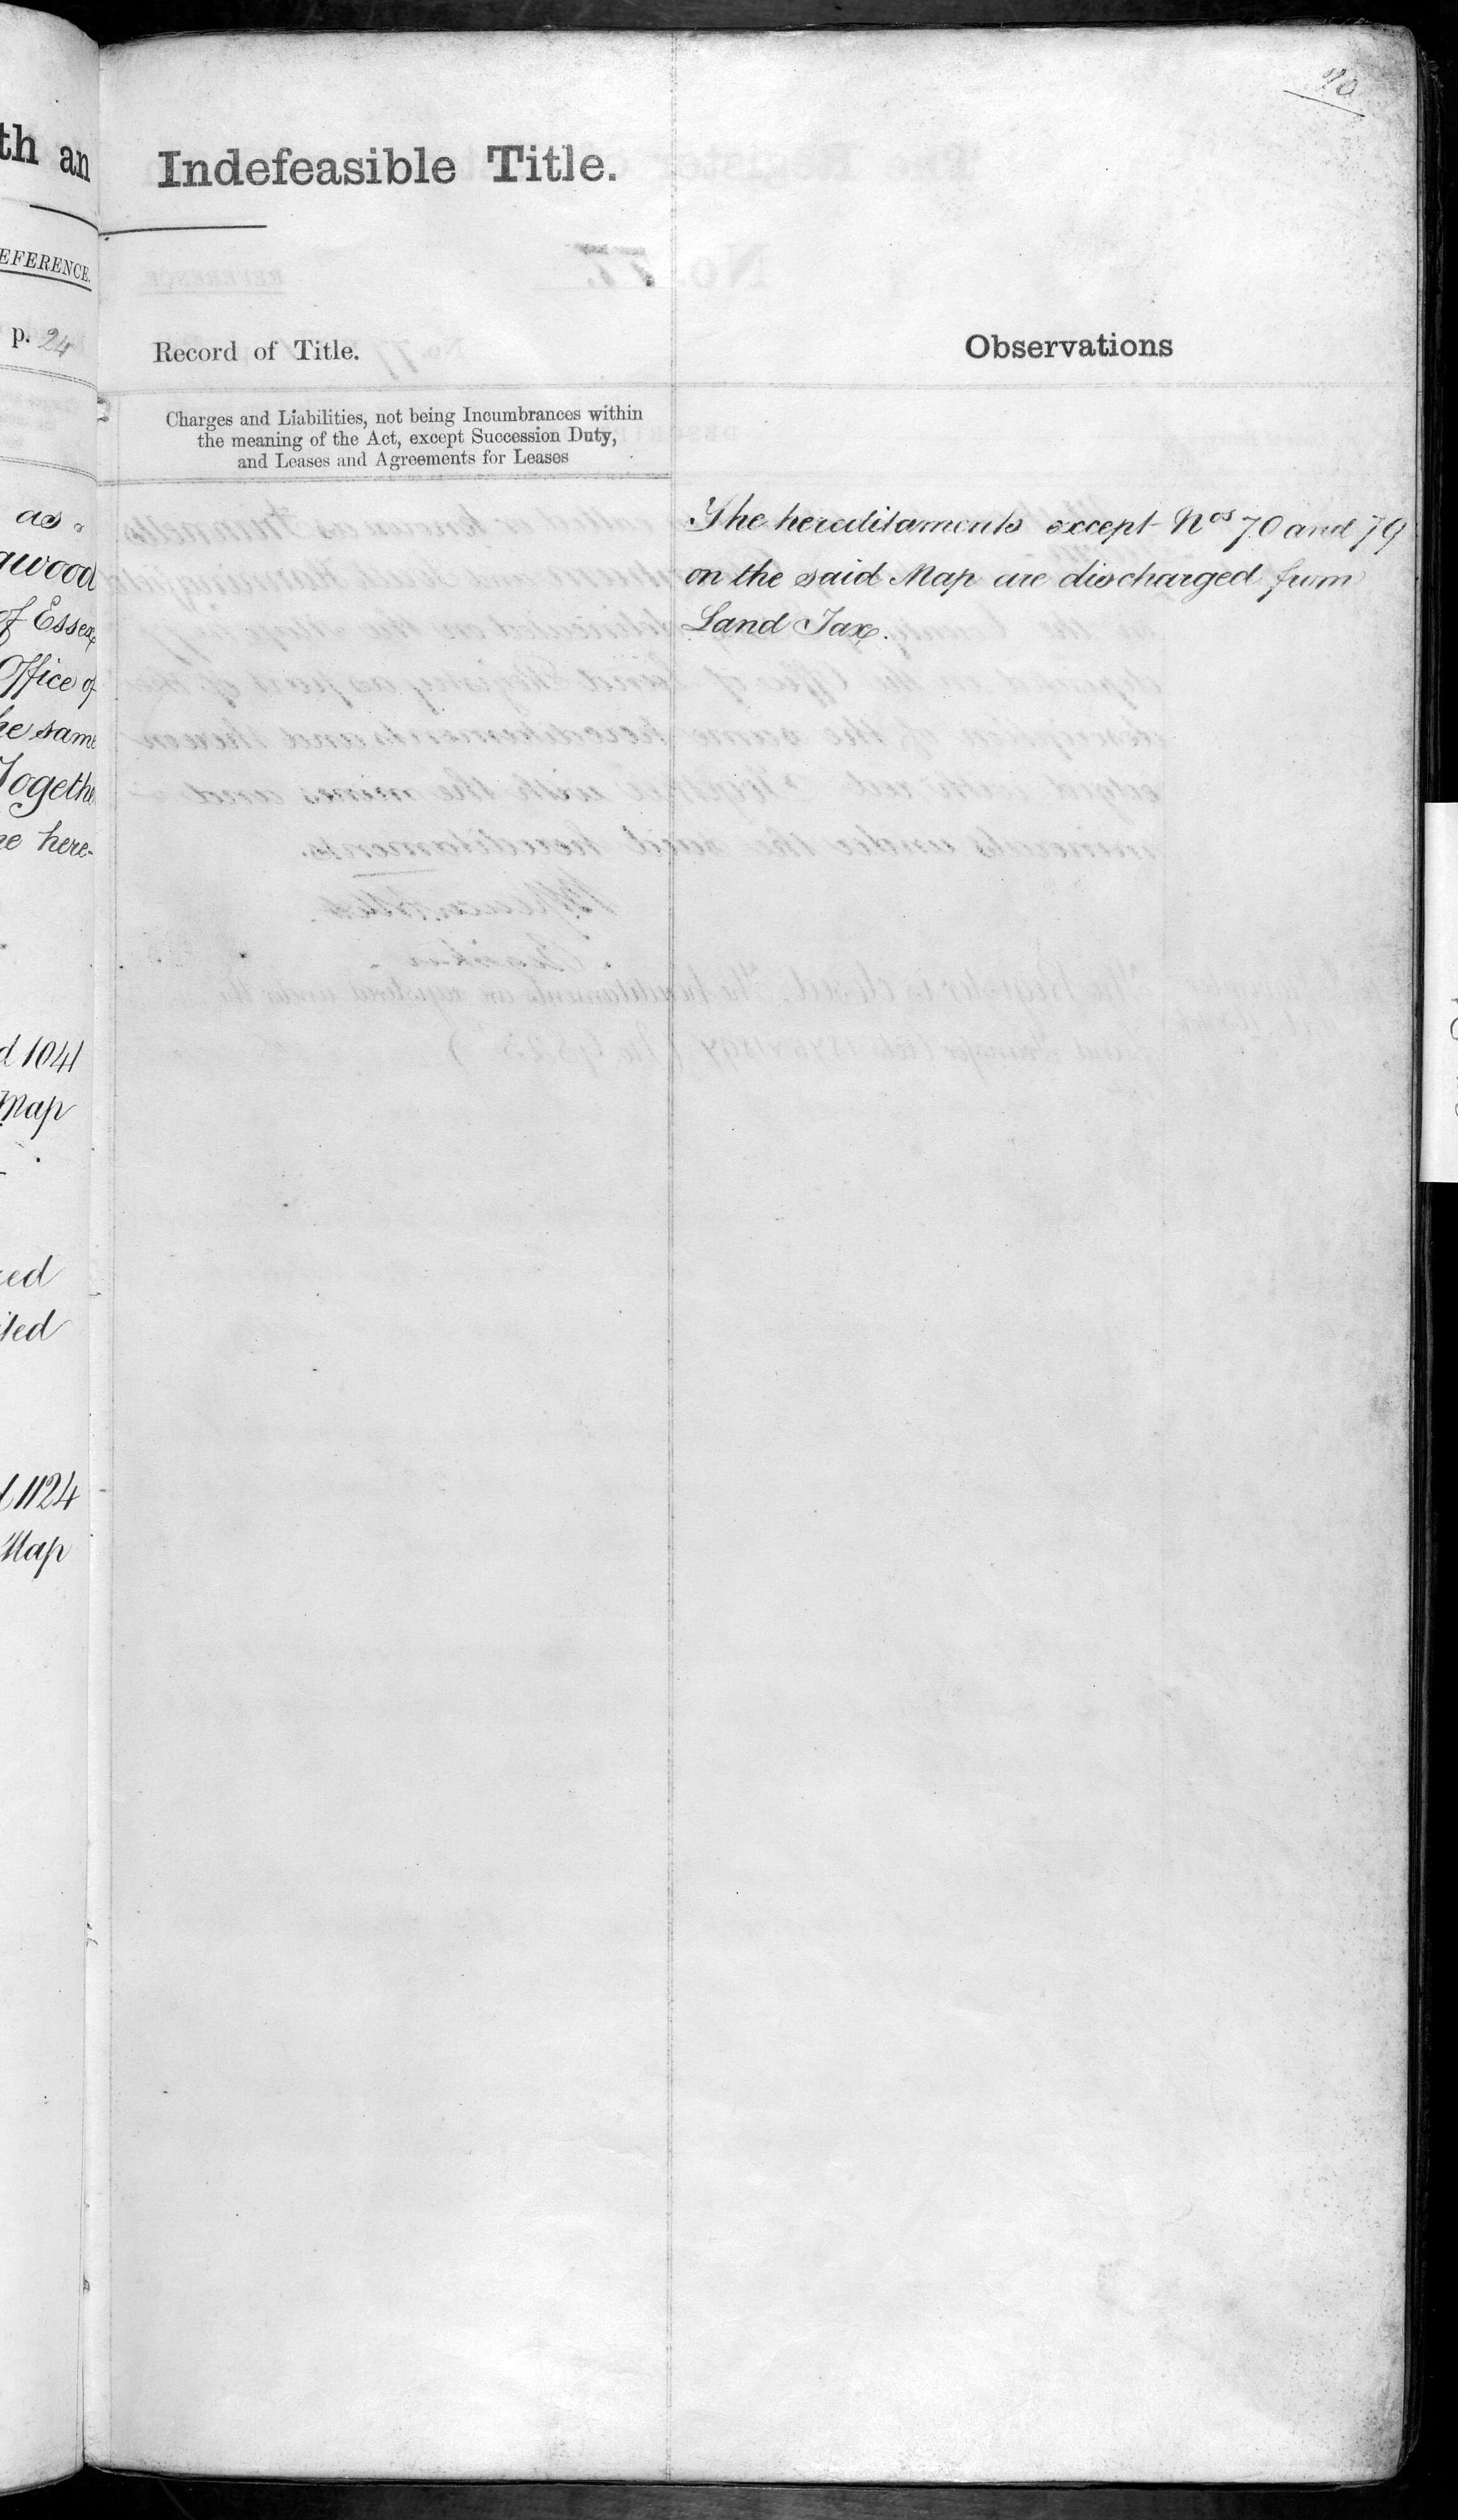 th an
EFERENCE.
p. 24
as
awood
of Essex
Office of
he same
Togethe
he here-
d 1041
Map
ted
d 1124
Map
70
Indefeasible Title.
Record of Title.
Charges and Liabilities, not being Incumbrances within
the meaning of the Act, except Succession Duty,
and Leases and Agreements for Leases
Observations
The hereditaments except Nos 70 and 79
on the said Map are discharged from
Land Tax.